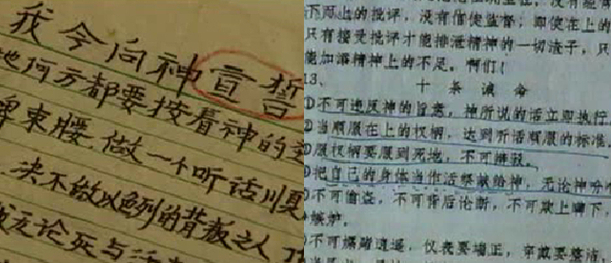 我今向神宣誓
地何方都要按着神的
束腰.做一个听话川顺
决不做以色列的背叛之人
无论死与活
下而上的批评，没有信徒监督；即使在上的
只有接受批评才能排泄精神的一切渣子，只
能加添精神上的不足。啊们(
13、
十条诫命
①不可违反神的旨意，神所说的话立即执行
②当顺服在上的权柄，达到听话顺服的标准
服权柄要服到死地，不可
把自己的身体当作活祭献给神，无论神
不可偷盗，不可背后论断，不可欺上瞒下，
嫉妒。
不可嬉闹逍遥，仪表要端正，穿戴要整洁，